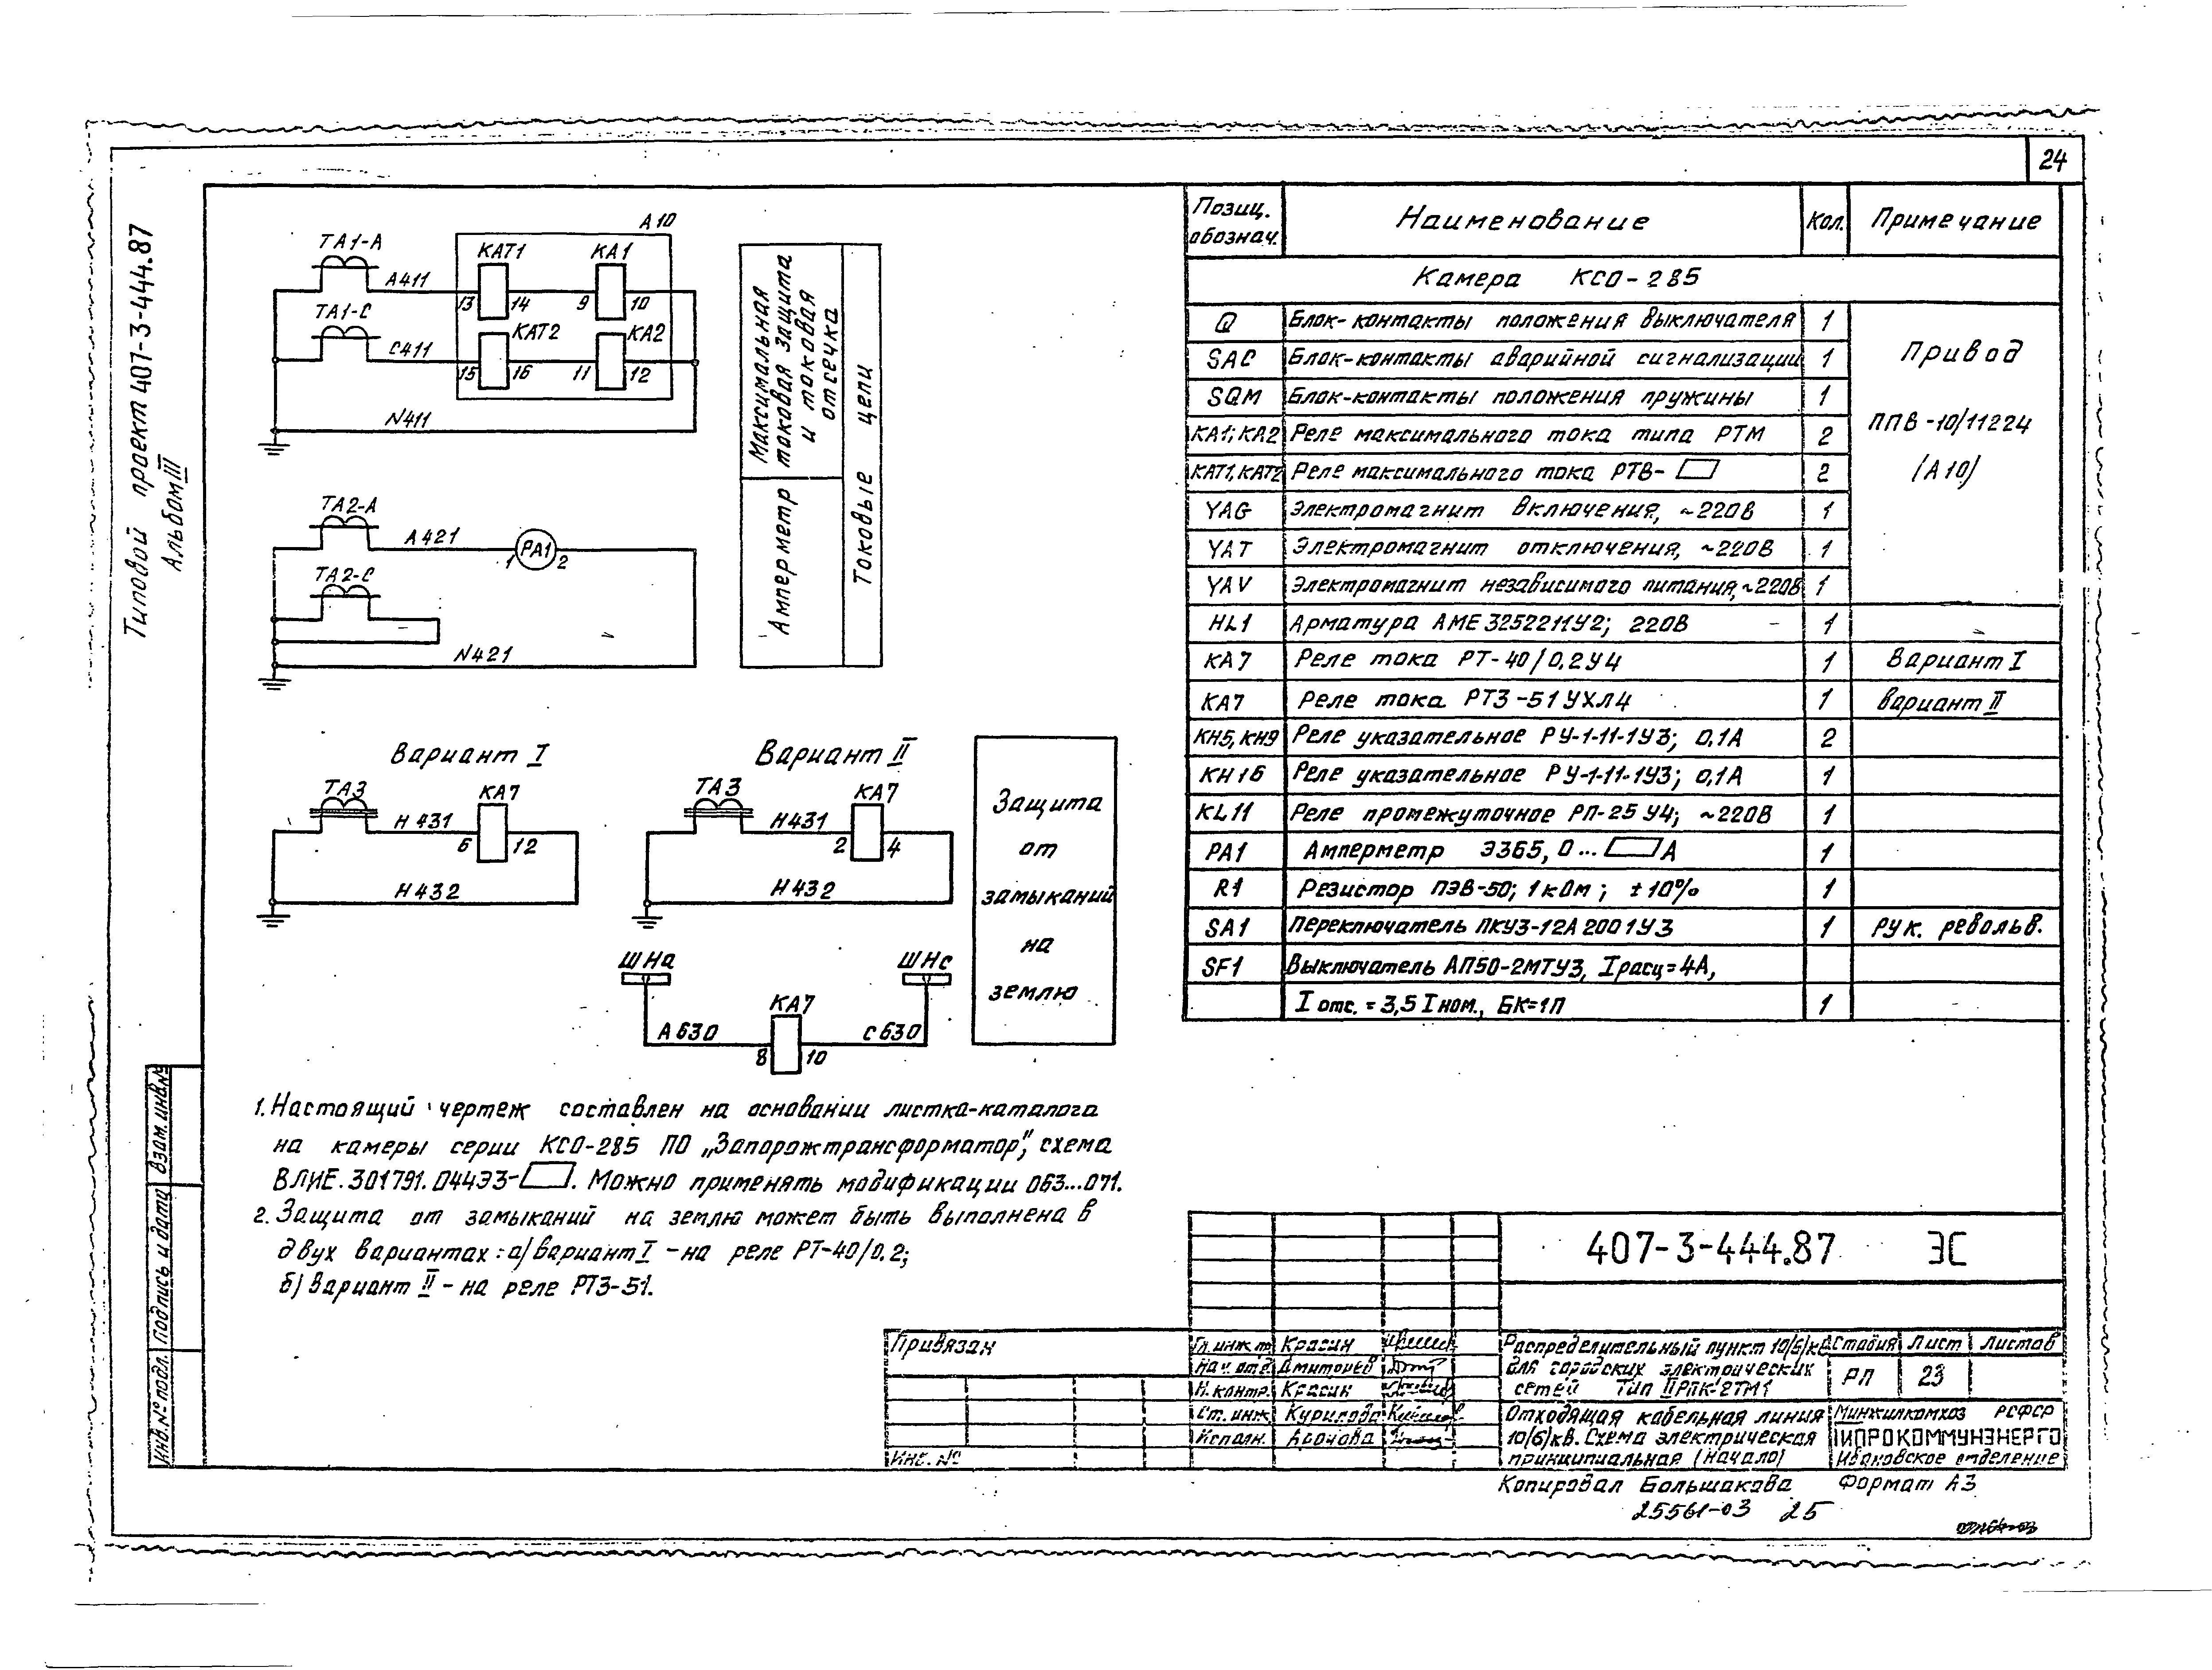 24
Типовой проект 407-3-444.87
Альбом III
А10
ТА1-А
КАТ1
КА1
А411
13
14
9
10
ТА1-С
КАТ2
КА2
С411
15
16
11
12
N411
Максимальная
токовая защита
и токовая
отсечка
Амперметр
Токовые цепи
ТА2-А
А421
1
РА1
2
ТА2-С
N421
Вариант I
ТА3
КА7
Н431
6
12
Н432
Вариант II
ТА3
КА7
Н431
2
4
Н432
ШНа
ШНс
КА7
А630
С630
8
10
Защита
от
замыканий
на
землю
1. Настоящий чертеж составлен на основании листка-каталога
на камеры серии КСО-285 ПО „Запорожтрансформатор", схема
ВЛИЕ.301791.044Э3-. Можно применять модификации 063...071.
2. Защита от замыканий на землю может быть выполнена в
двух вариантах: а) вариант I - на реле РТ-40/0.2;
б) вариант II - на реле РТЗ-51.
Позиц. обознач. Наименование Кол. Примечание
Камера КСО-285
Q Блок-контакты положения выключателя 1
SAC Блок-контакты аварийной сигнализации 1
SQM Блок-контакты положения пружины 1
КА1; КА2 Реле максимального тока типа РТМ 2
КАТ1, КАТ2 Реле максимального тока РТВ- 2
YAG Электромагнит включения, ~220В 1
YAT Электромагнит отключения, ~220В 1
YAV Электромагнит независимого питания, ~220В 1
Привод
ППВ-10/11224
(А10)
HL1 Арматура АМЕ3252211У2; 220В 1
КА7 Реле тока РТ-40/0,2У4 1 Вариант I
КА7 Реле тока РТЗ-51УХЛ4 1 Вариант II
КН5, КН9 Реле указательное РУ-1-11-1У3; 0,1А 2
КН16 Реле указательное РУ-1-11-1У3; 0,1А 1
KL11 Реле промежуточное РП-25У4; ~220В 1
РА1 Амперметр Э365, 0...А 1
R1 Резистор ПЭВ-50; 1кОм; ±10% 1
SA1 Переключатель ПКУ3-12А2001У3 1 рук. револьв.
SF1 Выключатель АП50-2МТУ3, Iрасц=4А,
Iотс.=3,5Iном., БК=1П 1
407-3-444.87 ЭС
Привязан
Инв. №
Гл. инж. п Красин
Нач. отд. Дмитриев
Н. контр. Красин
Ст. инж. Курилова
Исполн.
Распределительный пункт 10(6)кВ
для городских электрических
сетей Тип IIРПК-2ТМ1
Стадия Лист Листов
РП 23
Отходящая кабельная линия
10(6)кВ. Схема электрическая
принципиальная (начало)
Минжилкомхоз РСФСР
ГИПРОКОММУНЭНЕРГО
Ивановское отделение
Копировал Большакова Формат А3
25561-03 25
Взам. инв. №
Подпись и дата
Инв. № подл.